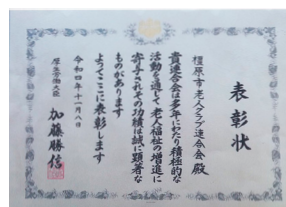 表彰状
橿原市老人クラブ連合会殿
貴連合会は多年にわたり積極的な
活動を通じて老人福祉の増進に
寄与されその功績は誠に顕著な
ものがあります
よってここに表彰します
令和四年十一月八日
厚生労働大臣
加藤勝信